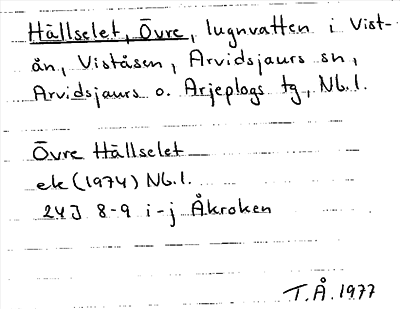 Hällselet, Övre, lugnvatten i Vist-
ån, Viståsen, Arvidsjaurs sn,
Arvidsjaurs o. Arjeplogs tg, Nb.l.
Övre Hällselet
ek (1974) Nb.l.
24J 8-9 i-j Åkroken
T.Å. 1977